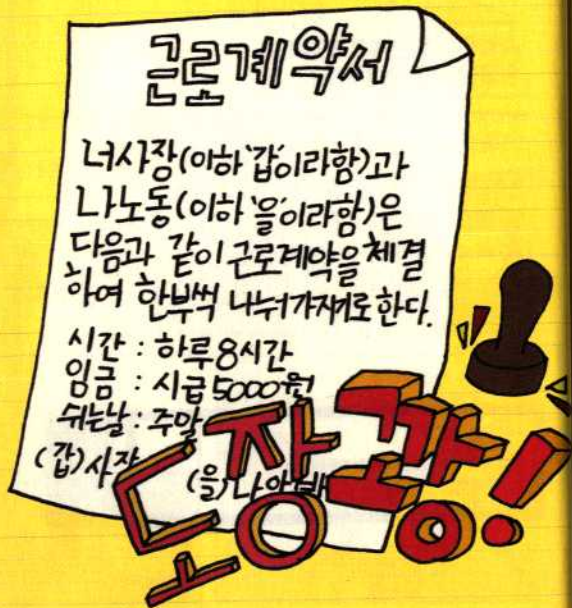 근로계약서
너사장(이하 '갑'이라함)과
나노동(이하 '을'이라함)은
다음과 같이 근로계약을 체결
하여 한부씩 나눠가지기로 한다.
시간 : 하루 8시간
임금 : 시급 5000원
쉬는날 : 주말
(갑) 사장 (을) 나
도장 쾅!